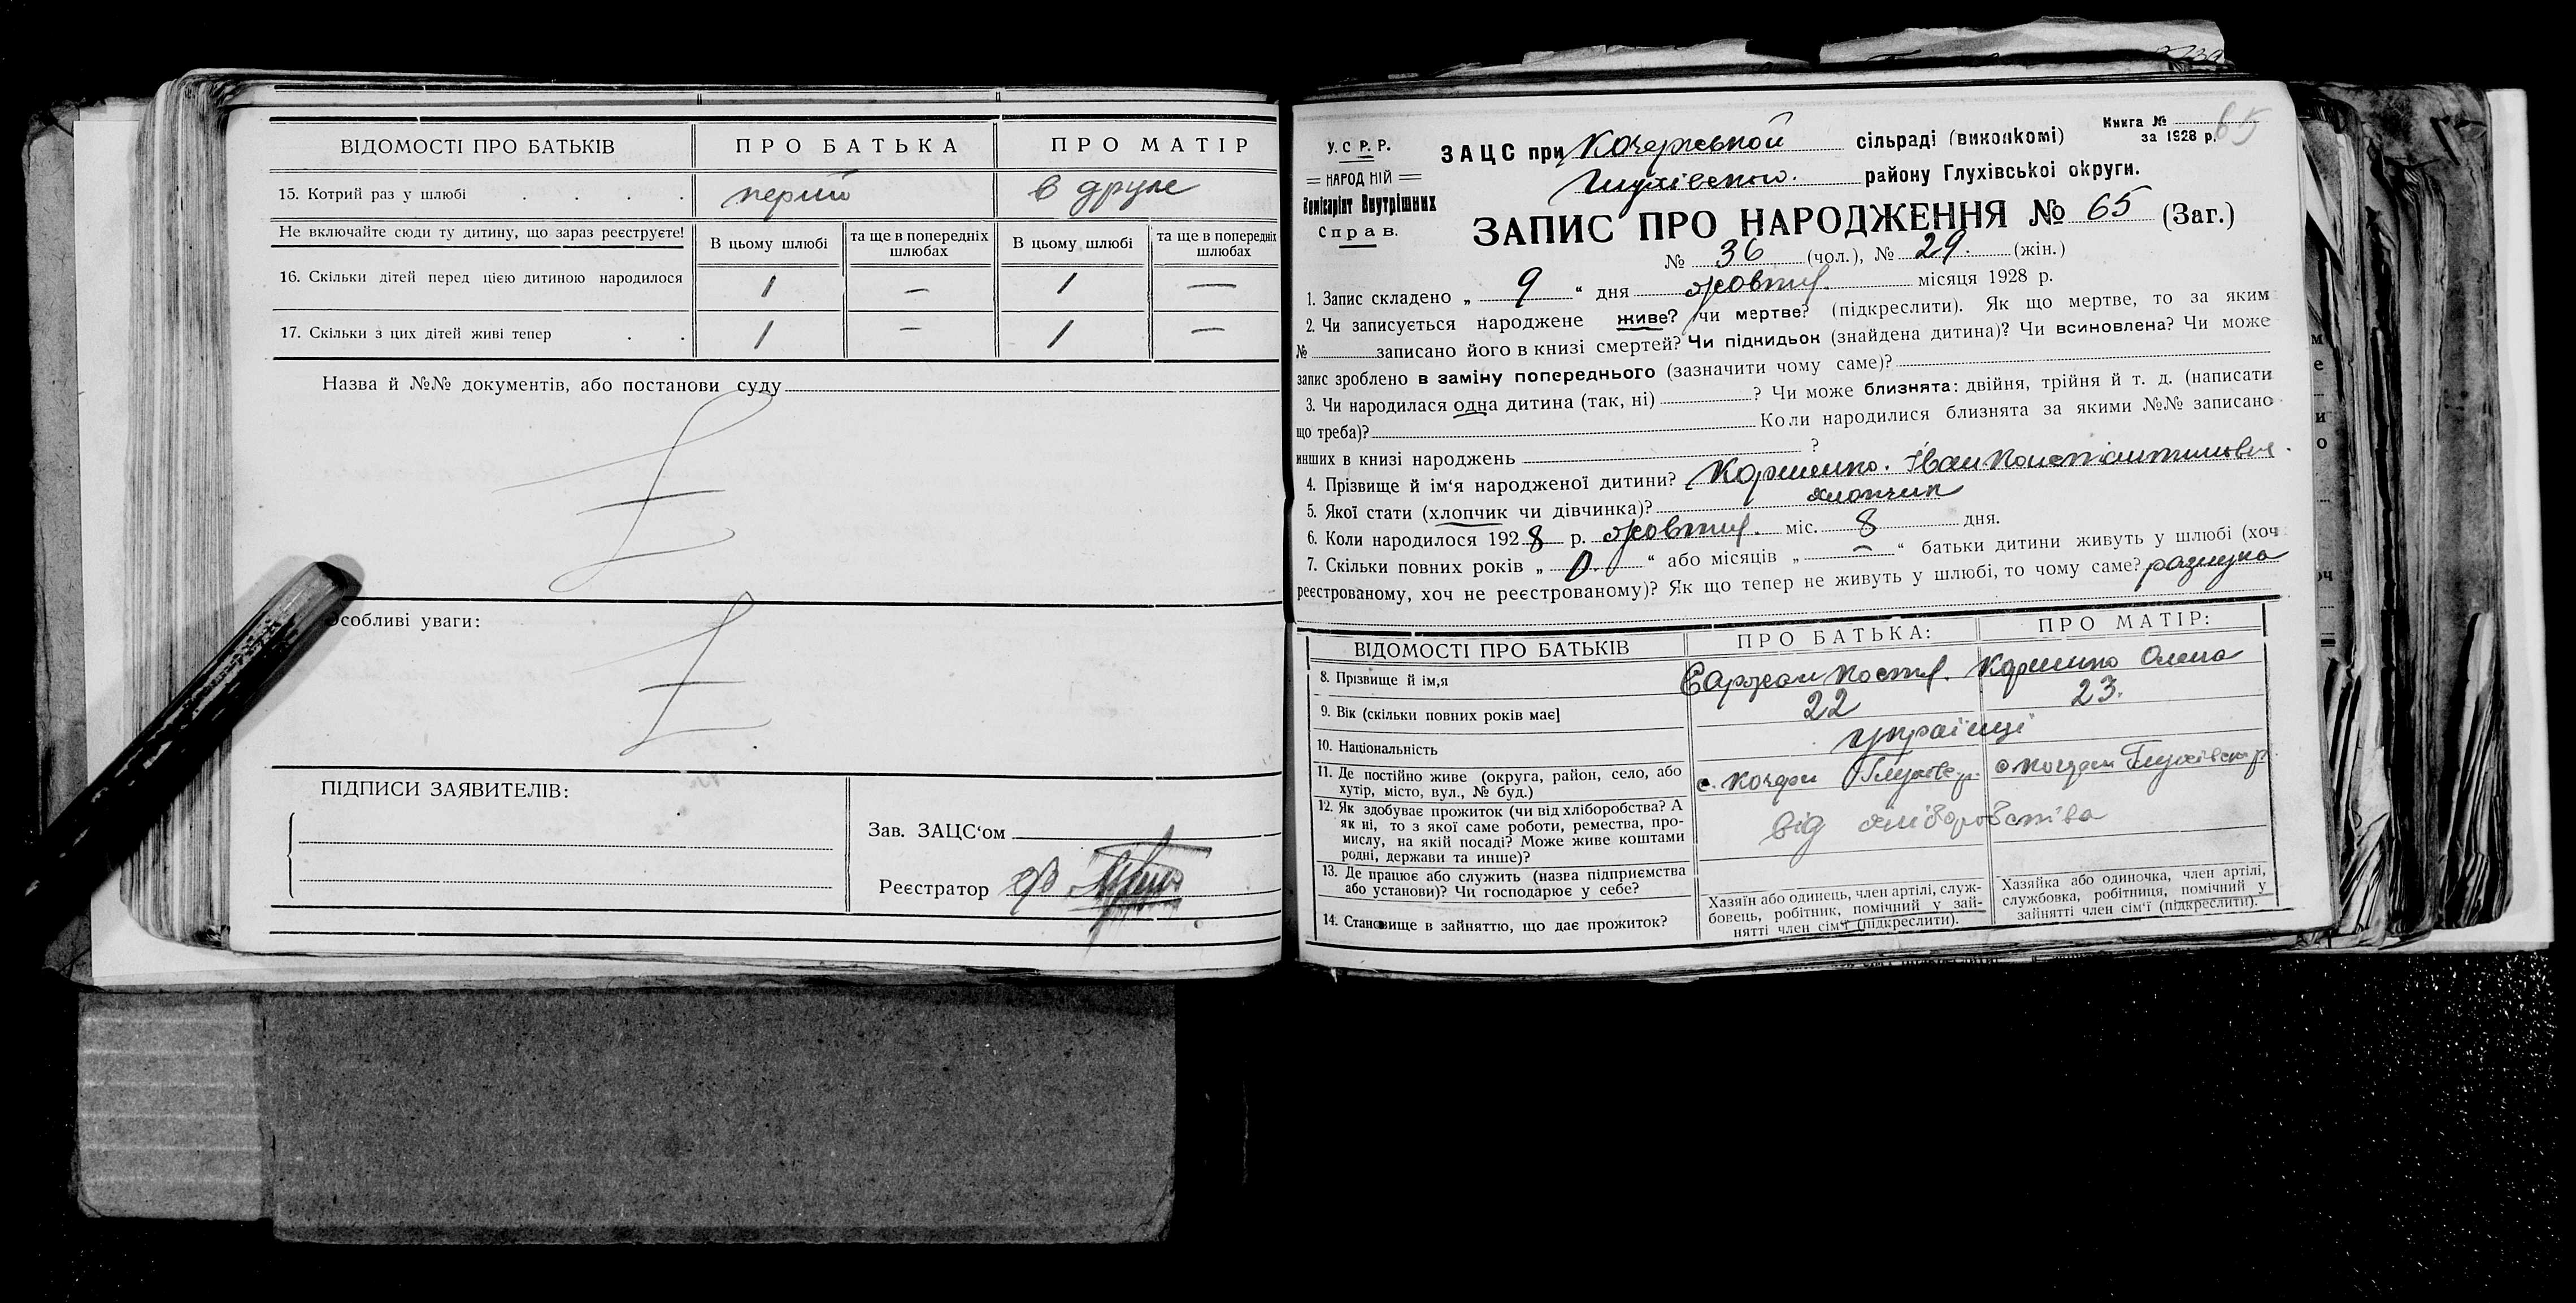 ВІДОМОСТІ ПРО БАТЬКІВ ПРО БАТЬКА ПРО МАТІР
15. Котрий раз у шлюбі . . . . перший в друге
Не включайте сюди ту дитину, що зараз реєструєте! В цьому шлюбі та ще в попередніх шлюбах В цьому шлюбі та ще в попередніх шлюбах
16. Скільки дітей перед цією дитиною народилося 1 — 1 —
17. Скільки з цих дітей живі тепер . . 1 — 1 —
Назва й №№ документів, або постанови суду
Особливі уваги:
ПІДПИСИ ЗАЯВИТЕЛІВ:
Зав. ЗАЦС‘ом
Реєстратор
Книга №
за 1928 р. 65
У. С Р. Р.
НАРОДНІЙ
Комісаріят Внутрішних
Справ.
ЗАЦС при Кочержської сільраді (виконкомі)
Глухівського. району Глухівської округи.
ЗАПИС ПРО НАРОДЖЕННЯ № 65 (Заг.)
№ 36 (чол.), № 29. (жін.)
1. Запис складено „ 9 “ дня жовтня. місяця 1928 р.
2. Чи записується народжене живе? чи мертве? (підкреслити). Як що мертве, то за яким
№ записано його в книзі смертей? Чи підкидьок (знайдена дитина)? Чи всиновлена? Чи може
запис зроблено в заміну попереднього (зазначити чому саме)?
3. Чи народилася одна дитина (так, ні) ? Чи може близнята: двійня, трійня й т. д. (написати
що треба)? Коли народилися близнята за якими №№ записано
инших в книзі народжень ?
4. Прізвище й ім‘я народженої дитини? Іван Константинович.
5. Якої стати (хлопчик чи дівчинка)? хлопчик
6. Коли народилося 1928 р. жовтня. міс. 8 дня.
7. Скільки повних років „ 0. “ або місяців „ — “ батьки дитини живуть у шлюбі (хоч
реєстрованому, хоч не реєстрованому)? Як що тепер не живуть у шлюбі, то чому саме? разлука
ВІДОМОСТІ ПРО БАТЬКІВ ПРО БАТЬКА: ПРО МАТІР:
8. Прізвище й ім,я Саржан Кост. Олена
9. Вік (скільки повних років має] 22 23.
10. Національність українці
11. Де постійно живе (округа, район, село, або
хутір, місто, вул., № буд.) с. Кочерги Глухівс. р. с. Кочерги Глухівськ. р.
12. Як здобуває прожиток (чи від хліборобства? А
як ні, то з якої саме роботи, ремества, про-
мислу, на якій посаді? Може живе коштами
родні, держави та инше)? від хліборобства
13. Де працює або служить (назва підприємства
або установи)? Чи господарює у себе?
14. Становище в зайняттю, що дає прожиток?
Хазяїн або одинець, член артілі, служ-
бовець, робітник, помічний у зай-
нятті член сім‘ї (підкреслити).
Хазяйка або одиночка, член артілі,
службовка, робітниця, помічний у
зайнятті член сім‘ї (підкреслити).